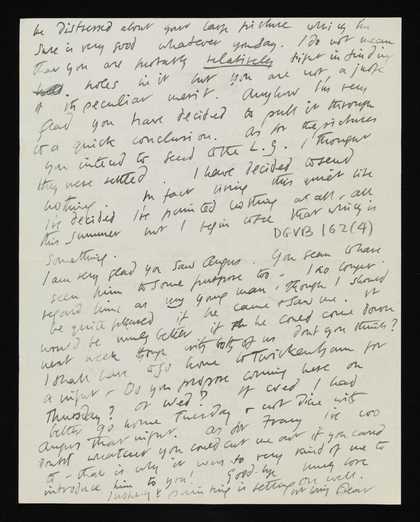 be distressed about your large picture which I'm
sure is very good whatever you say. I do not mean
that you are probably relatively right in finding
holes in it but you are not a judge
of its peculiar merit. Anyhow I'm very
glad you have decided to pull it through
to a quick conclusion. As for the pictures
you intend to send to the L.G. I thought
they were settled. I have decided to send
nothing. In fact living this quiet life
I've decided I've painted nothing at all, all
this summer but I begin to see that which is
something. DGVB/62(4)
I am very glad you saw Angus. You seem to have
seen him to some purpose too - I no longer
regard him as my young man, though I should
be quite pleased if he came & saw me. It
would be much better if he could come down
next week & stop with both of us don't you think?
I shall have to go home to Twickenham for
a night. Do you propose coming here on
Thursday? or Wed? If Wed I had
better go home Tuesday & not dine with
Angus that night. As for Franz I've no
doubt whatever you could cut me out if you cared
to - that is why it was so very kind of me to
introduce him to you! Good-bye much love
painting is getting on well.